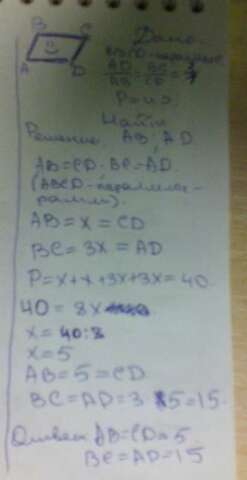 B C
A D
Дано:
ABCD-паралл
AD/AB = BC/CD = 3/1
P=40
Найти
AB, AD
Решение.
AB=CD. BC=AD.
(ABCD-параллелог-
рамм).
AB = x = CD
BC = 3x = AD
P=x+x+3x+3x=40.
40 = 8x
x = 40:8
x = 5
AB = 5 = CD.
BC=AD=3 5=15.
Ответ: AB=CD=5.
BC=AD=15